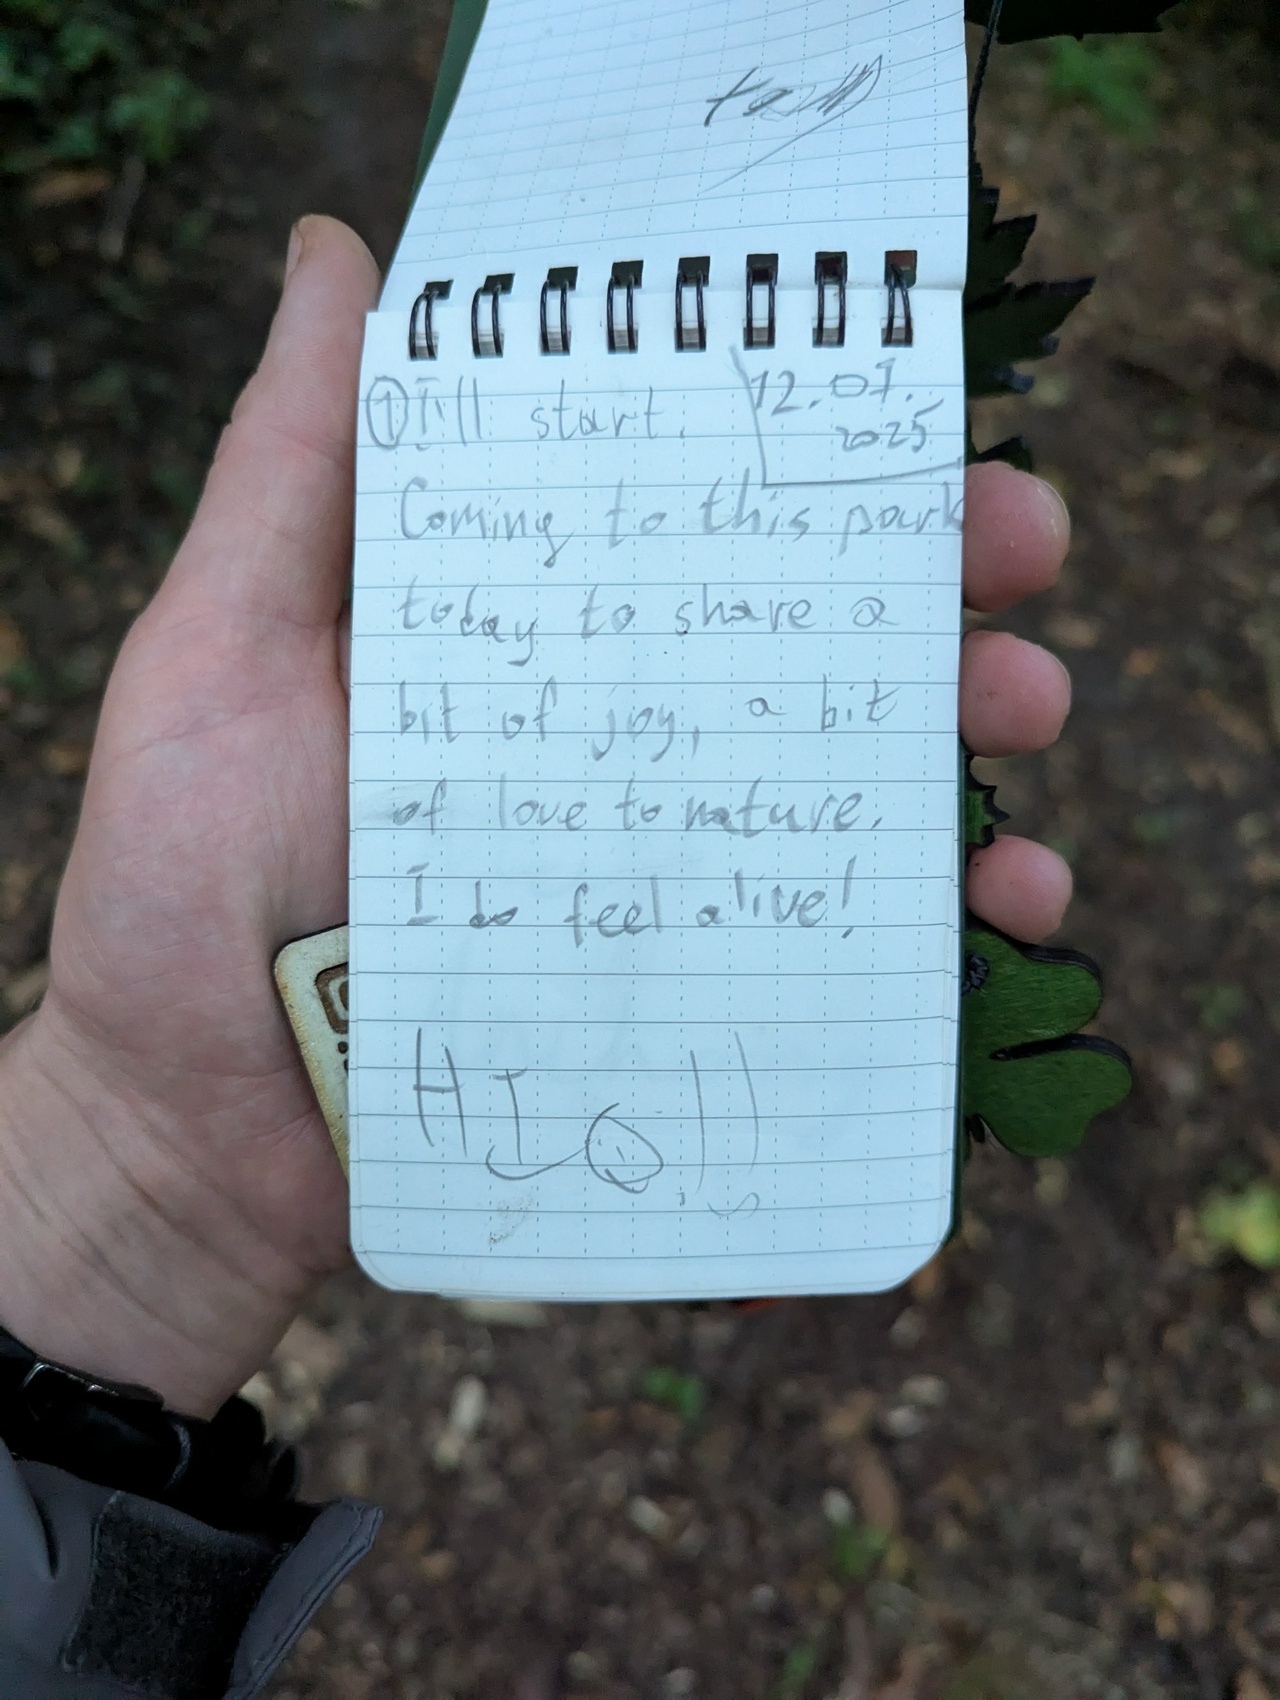 ① I'll start.
12.01.
2025
Coming to this park
today to share a
bit of joy, a bit
of love to nature.
I do feel alive!
HI